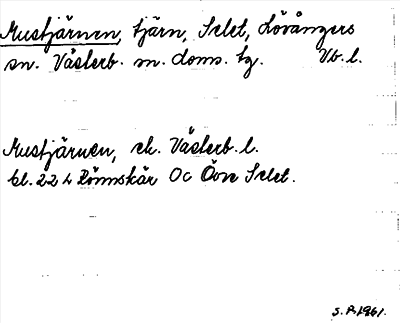 Mustjärnen, tjärn, Selet, Lövångers
sn. Västerb. m. doms. tg. Vb. l.
Mustjärnen, ek. Västerb. l.
bl. 22 L Rönnskär Oc Övre Selet.
S.P. 1961.